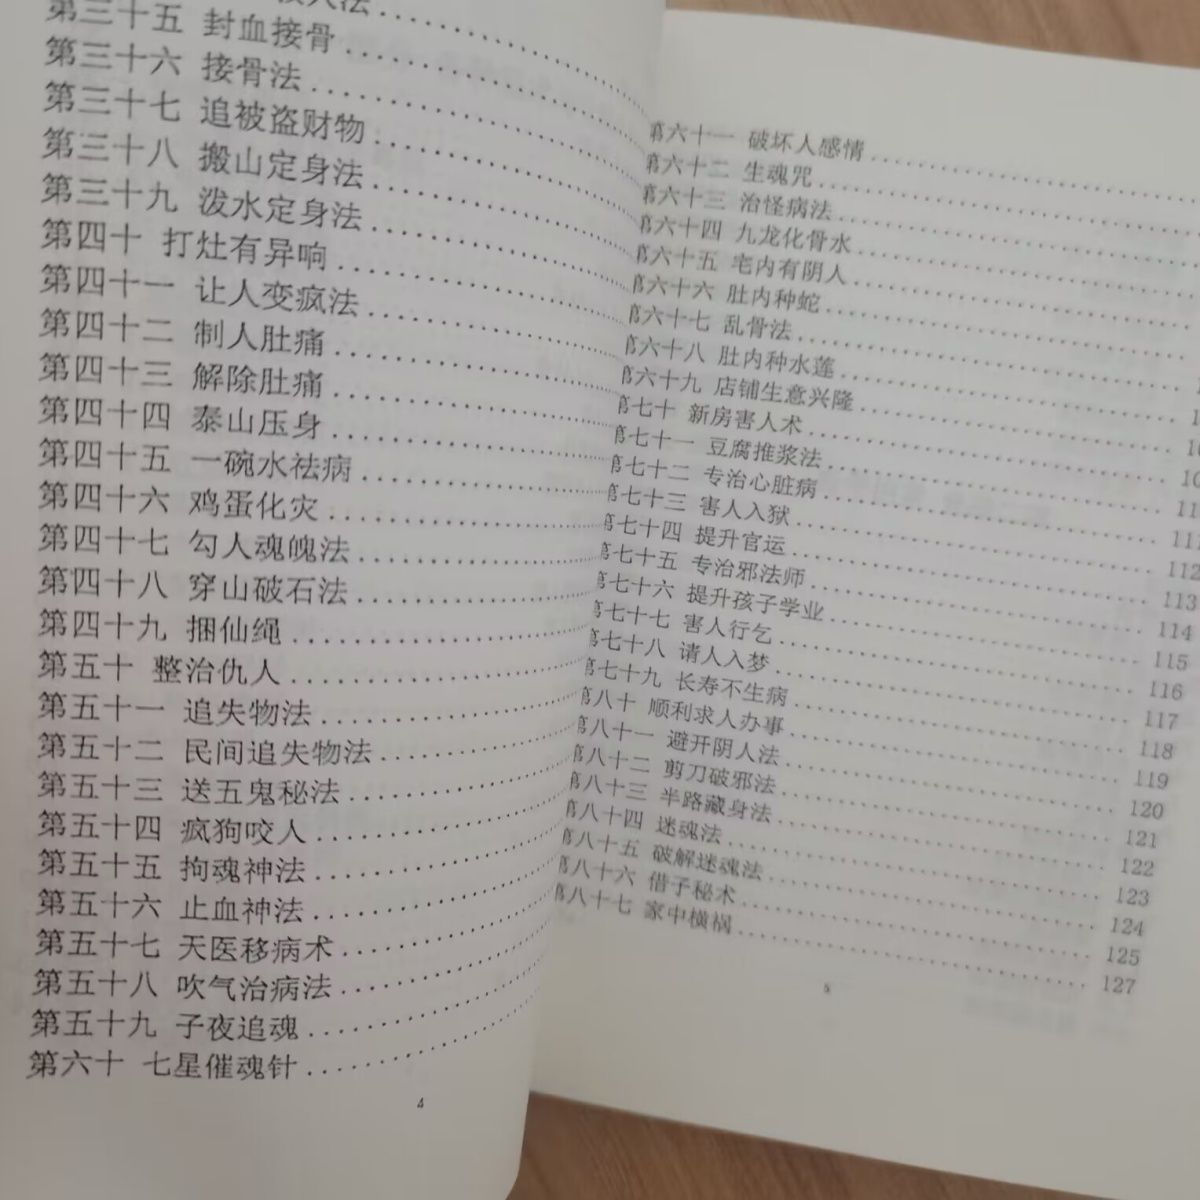 第三十五 封血接骨
第三十六 接骨法
第三十七 追被盗财物
第三十八 搬山定身法
第三十九 泼水定身法
第四十 打灶有异响
第四十一 让人变疯法
第四十二 制人肚痛
第四十三 解除肚痛
第四十四 泰山压身
第四十五 一碗水祛病
第四十六 鸡蛋化灾
第四十七 勾人魂魄法
第四十八 穿山破石法
第四十九 捆仙绳
第五十 整治仇人
第五十一 追失物法
第五十二 民间追失物法
第五十三 送五鬼秘法
第五十四 疯狗咬人
第五十五 拘魂神法
第五十六 止血神法
第五十七 天医移病术
第五十八 吹气治病法
第五十九 子夜追魂
第六十 七星催魂针
4
第六十一 破坏人感情
第六十二 生魂咒
第六十三 治怪病法
第六十四 九龙化骨水
第六十五 宅内有阴人
第六十六 肚内种蛇
第六十七 乱骨法
第六十八 肚内种水莲
第六十九 店铺生意兴隆
第七十 新房害人术
第七十一 豆腐推浆法
第七十二 专治心脏病
第七十三 害人入狱
第七十四 提升官运 112
第七十五 专治邪法师 113
第七十六 提升孩子学业 114
第七十七 害人行乞 115
第七十八 请人入梦 116
第七十九 长寿不生病 117
第八十 顺利求人办事 118
第八十一 避开阴人法 119
第八十二 剪刀破邪法 120
第八十三 半路藏身法 121
第八十四 迷魂法 122
第八十五 破解迷魂法 123
第八十六 借子秘术 125
第八十七 家中横祸 127
5